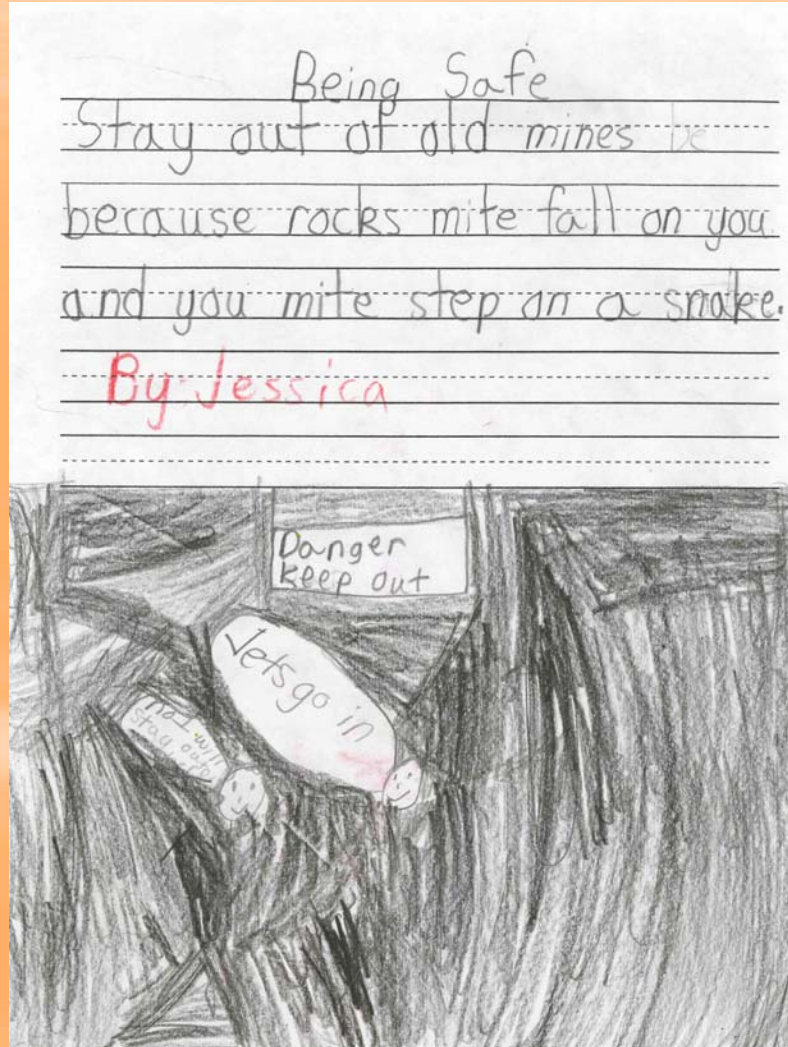 Being Safe
Stay out of old mines be
because rocks mite fall on you
and you mite step on a snake.
By Jessica
Danger
keep out
Lets go in
no I will
stay out